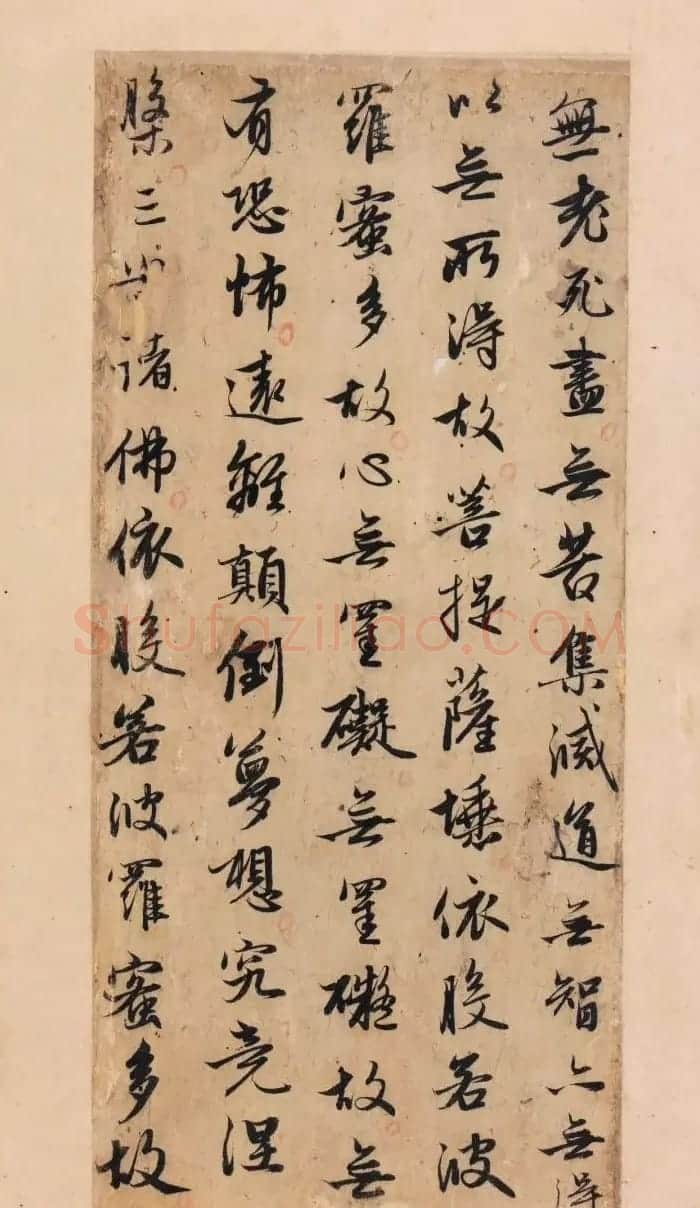 無老死盡無苦集滅道無智亦無得
以無所得故菩提薩埵依般若波
羅蜜多故心無罣礙無罣礙故無
有恐怖遠離顛倒夢想究竟涅
槃三世諸佛依般若波羅蜜多故
Shufaziliao.COM